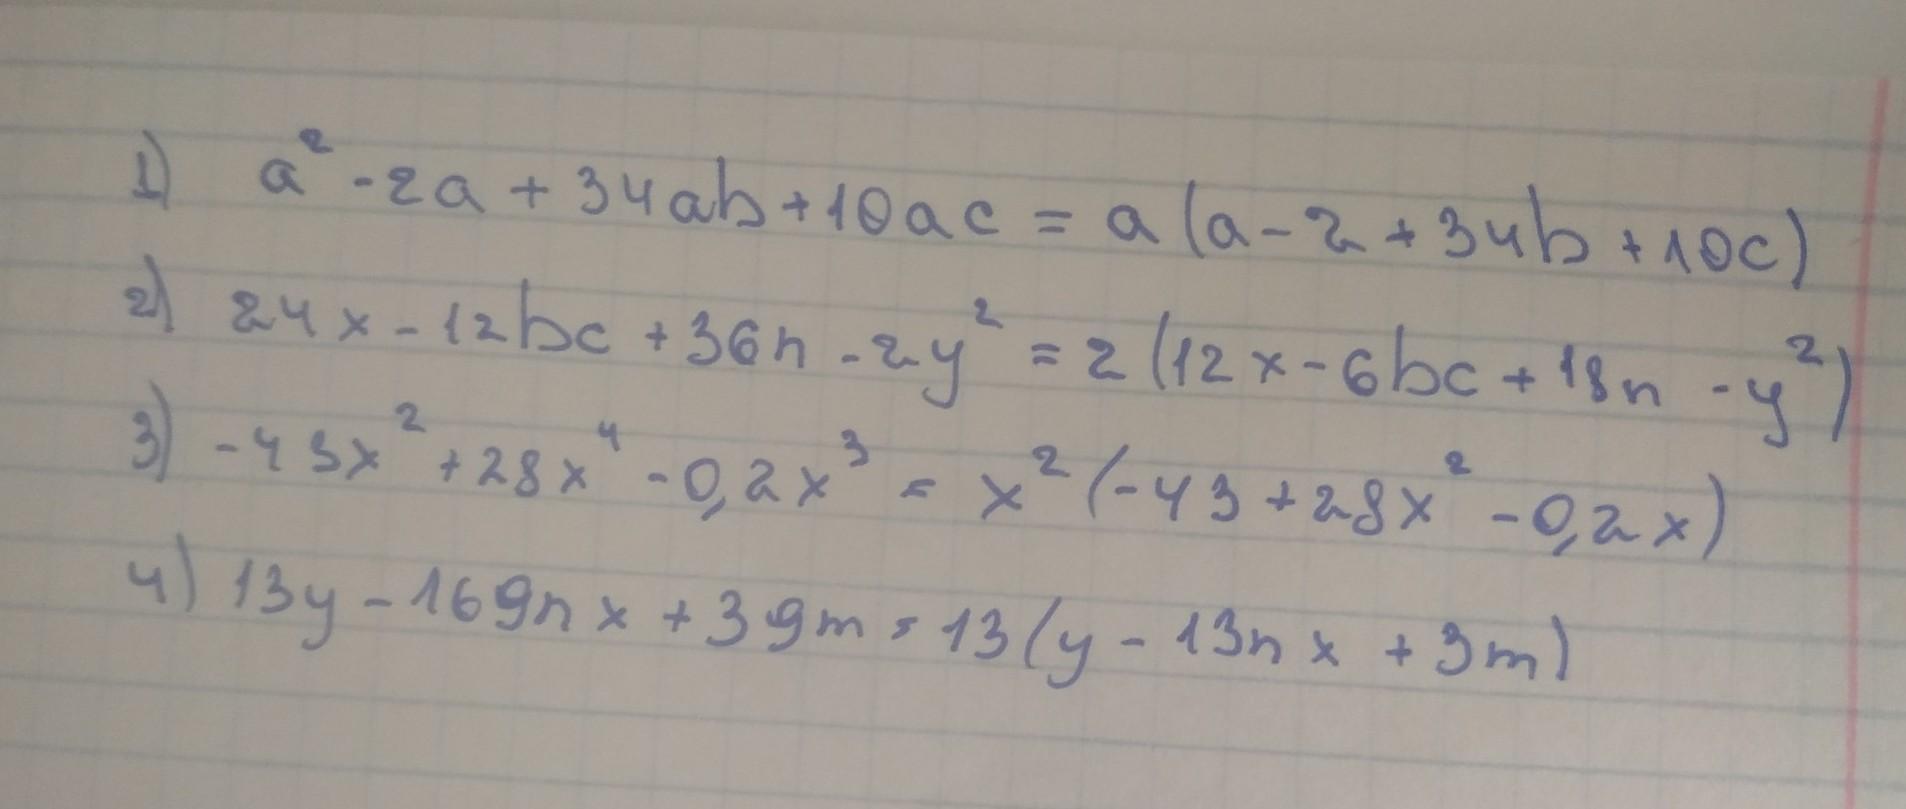 1) a² - 2a + 34ab + 10ac = a(a - 2 + 34b + 10c)
2) 24x - 12bc + 36n - 2y² = 2(12x - 6bc + 18n - y²)
3) -43x² + 28x⁴ - 0,2x³ = x²(-43 + 28x² - 0,2x)
4) 13y - 169nx + 39m = 13(y - 13nx + 3m)